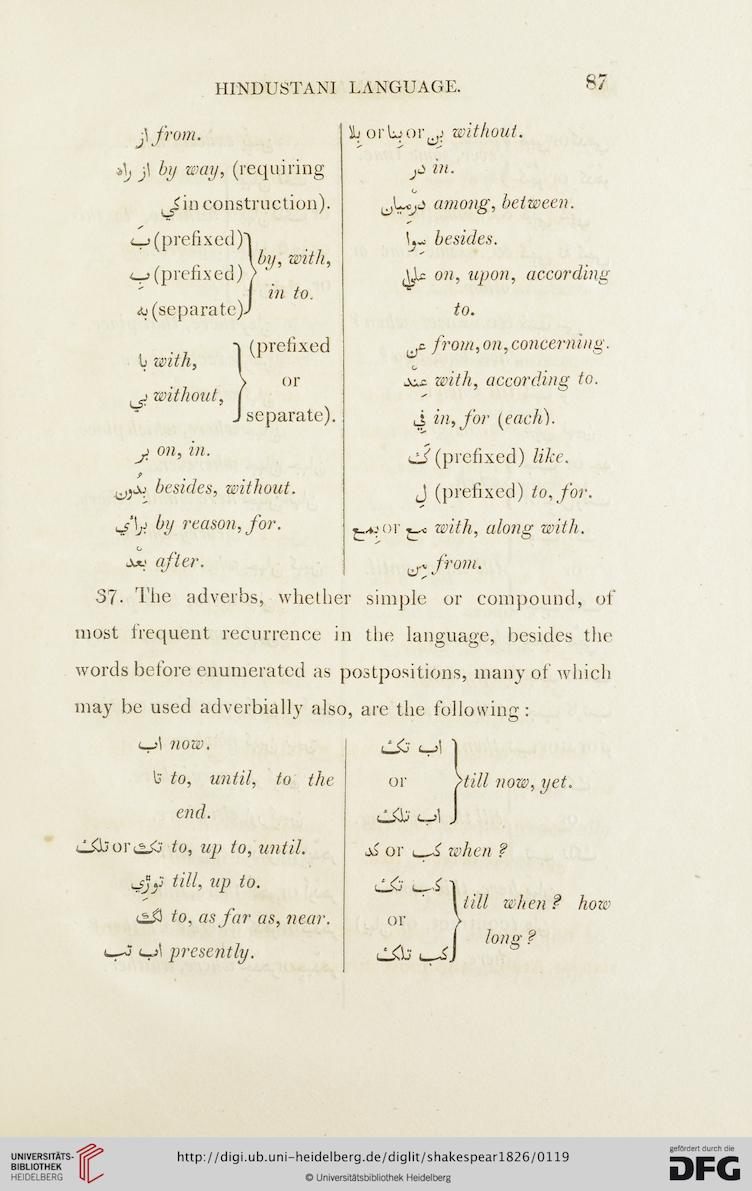 HINDUSTANI LANGUAGE.
87
از from.
از راه by way, (requiring
کي in construction).
بَ (prefixed)
بِ (prefixed)
به (separate)
by, with,
in to.
با with,
بي without,
(prefixed
or
separate).
بر on, in.
بدُون besides, without.
براﺋي by reason, for.
بعْد after.
بلا or بنا or بِن without.
در in.
درمْيان among, between.
سِوا besides.
علي on, upon, according
to.
عن from, on, concerning.
عِنْد with, according to.
في in, for (each).
کَ (prefixed) like.
لِ (prefixed) to, for.
بمع or مع with, along with.
مِن from.
37. The adverbs, whether simple or compound, of
most frequent recurrence in the language, besides the
words before enumerated as postpositions, many of which
may be used adverbially also, are the following:
اب now.
تا to, until, to the
end.
تلک or تک to, up to, until.
توڑي till, up to.
لگ to, as far as, near.
اب تب presently.
اب تک
or
اب تلک
till now, yet.
کد or کب when ?
کب تک
or
کب تلک
till when ? how
long ?
UNIVERSITÄTS-
BIBLIOTHEK
HEIDELBERG
http://digi.ub.uni-heidelberg.de/diglit/shakespear1826/0119
© Universitätsbibliothek Heidelberg
gefördert durch die
DFG